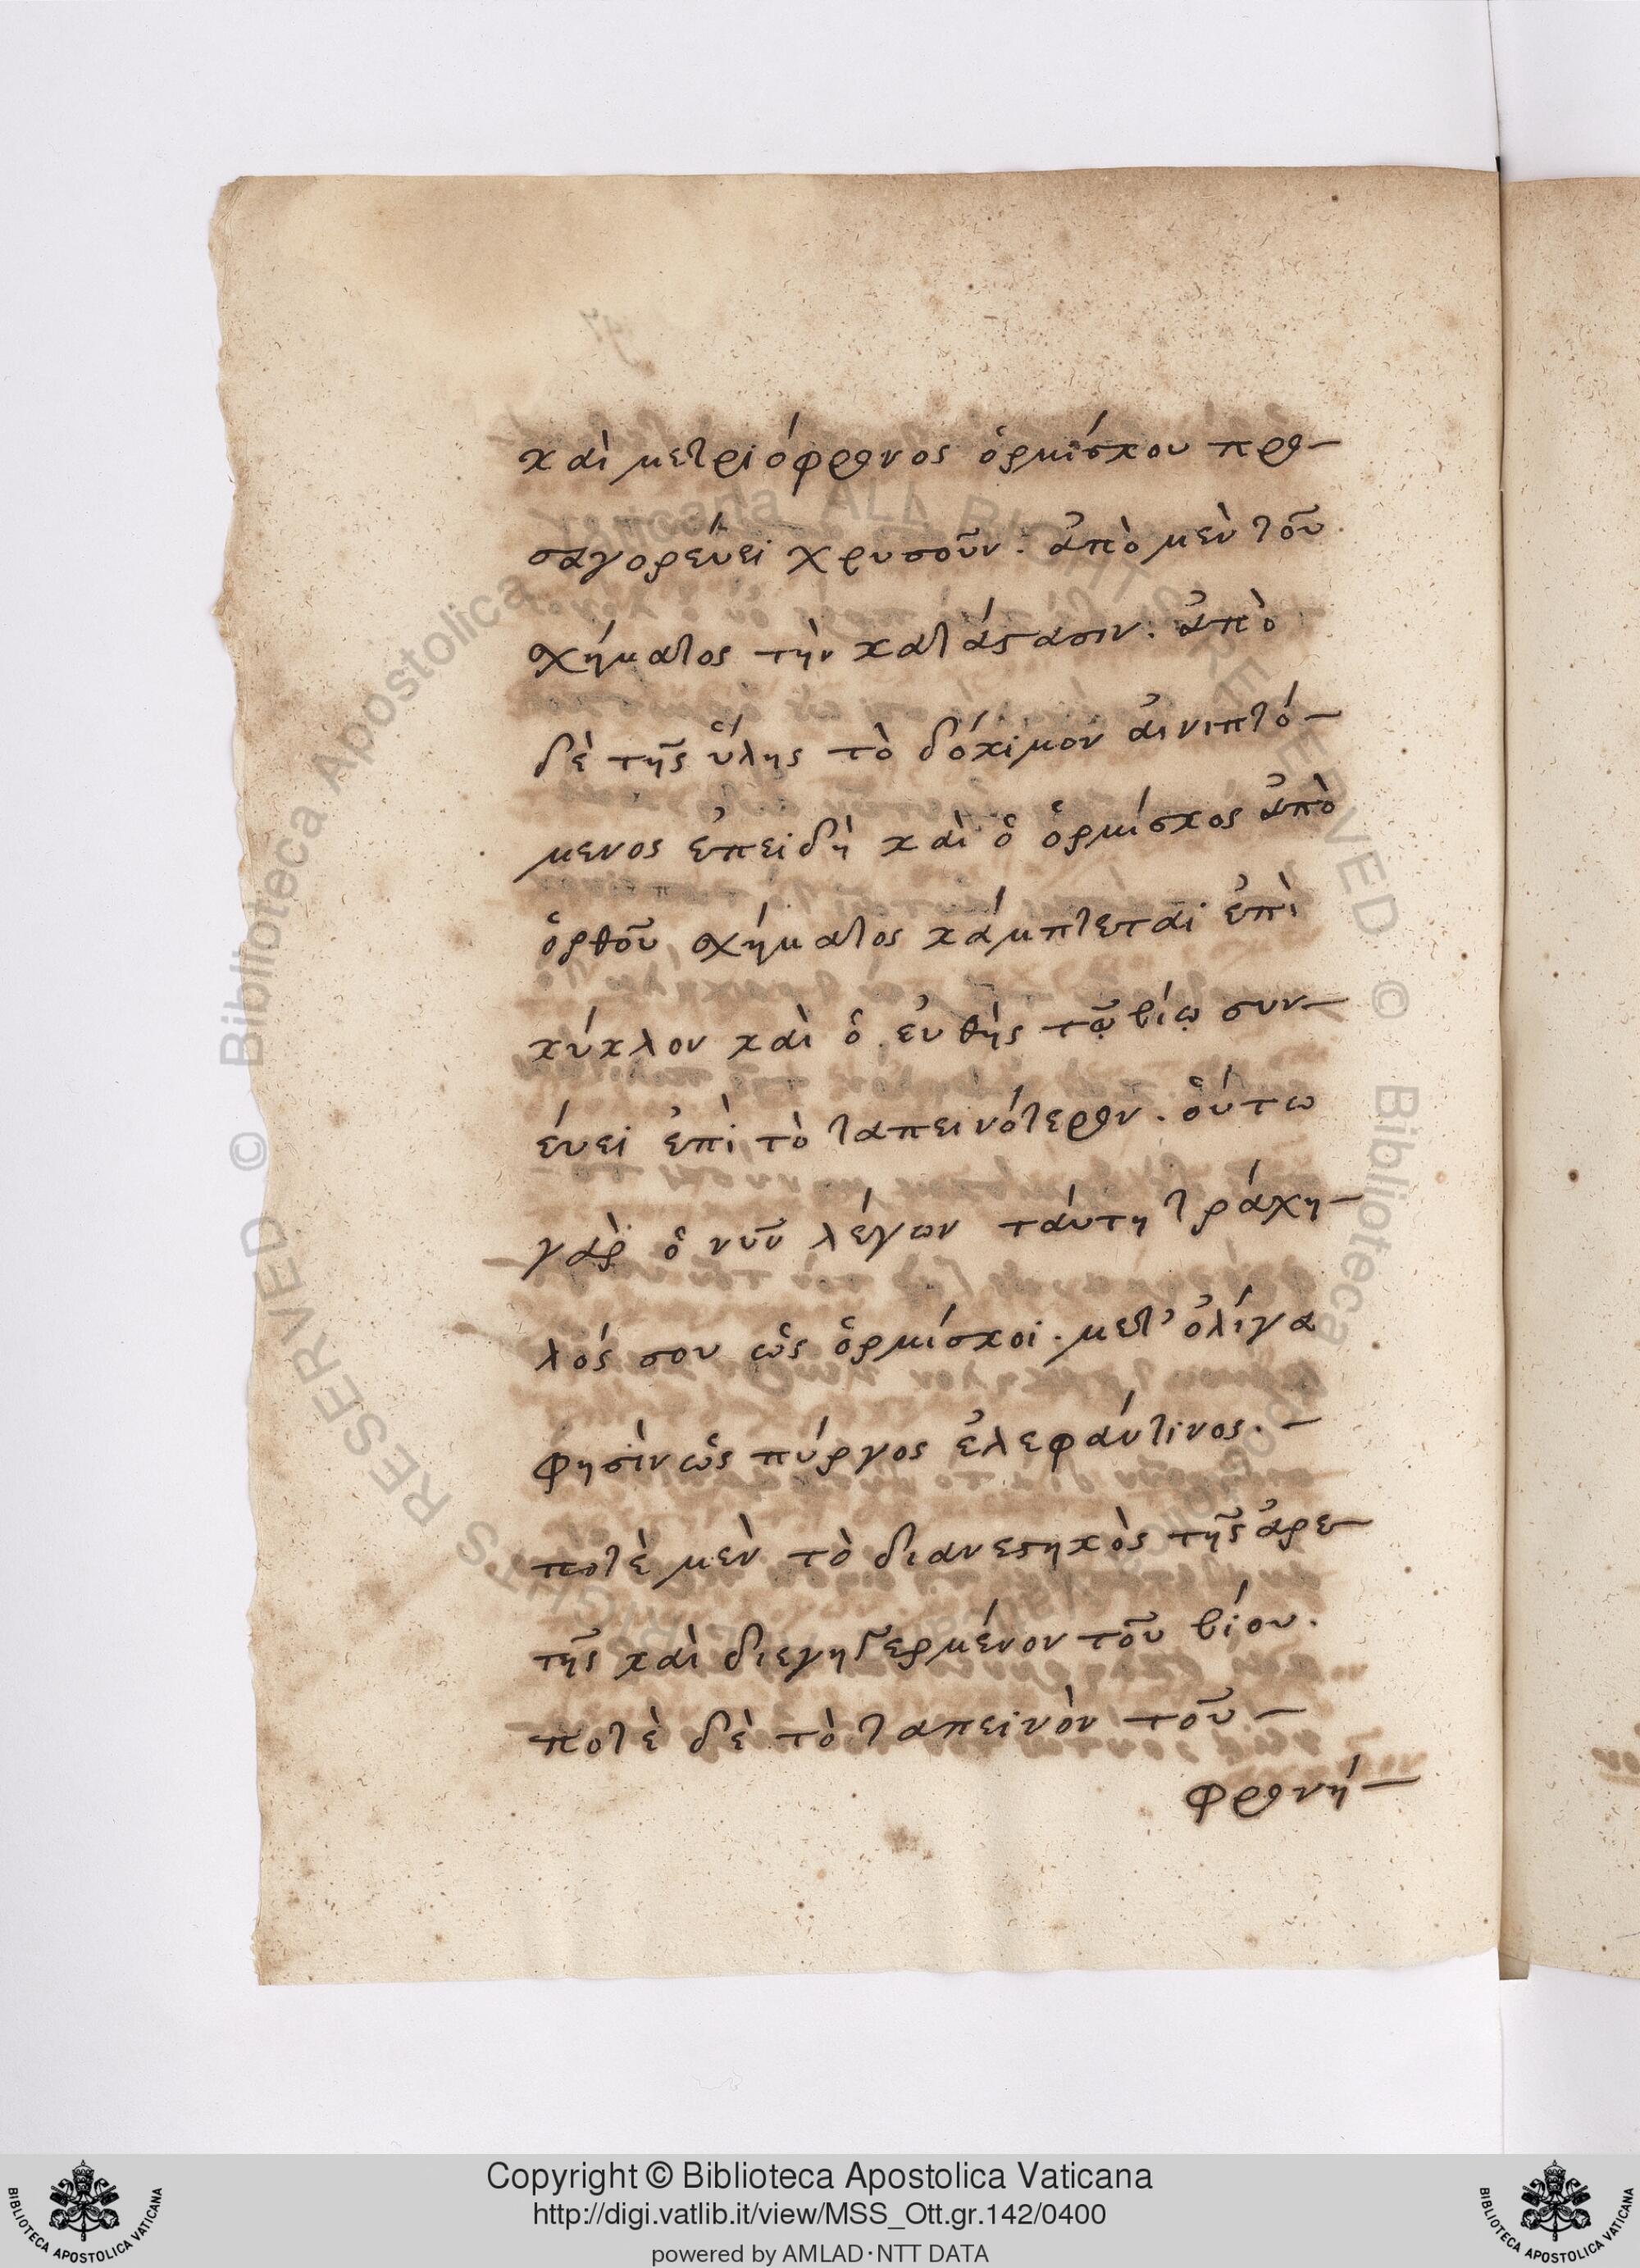 καὶ μετριόφρονος ὁρμίσκου προ-
σαγορεύει χρυσοῦν. ἀπὸ μὲν τοῦ
σχήματος τὴν κατάστασιν. ἀπὸ
δὲ τῆς ὕλης τὸ δόκιμον αἰνιπτό-
μενος ἐπειδὴ καὶ ὁ ὁρμίσκος ἀπὸ
ὀρθοῦ σχήματος κάμπτεται ἐπὶ
κύκλον καὶ ὁ εὐθὴς τῷ βίῳ συν-
έυει ἐπὶ τὸ ταπεινότερον. ὅυτω
γὰρ ὁ νῦν λέγων τάυτη τράχη-
λός σου ὡς ὁρμίσκοι. μετ' ὀλίγα
φησὶν ὡς πύργος ἐλεφάντινος. -
ποτὲ μὲν τὸ διανεστηκὸς τῆς ἀρε-
τῆς καὶ διεγηγερμένον τοῦ βίου.
ποτὲ δὲ τὸ ταπεινὸν τοῦ -
φρονή-
Copyright © Biblioteca Apostolica Vaticana
http://digi.vatlib.it/view/MSS_Ott.gr.142/0400
powered by AMLAD·NTT DATA
BIBLIOTECA APOSTOLICA VATICANA
BIBLIOTECA APOSTOLICA VATICANA